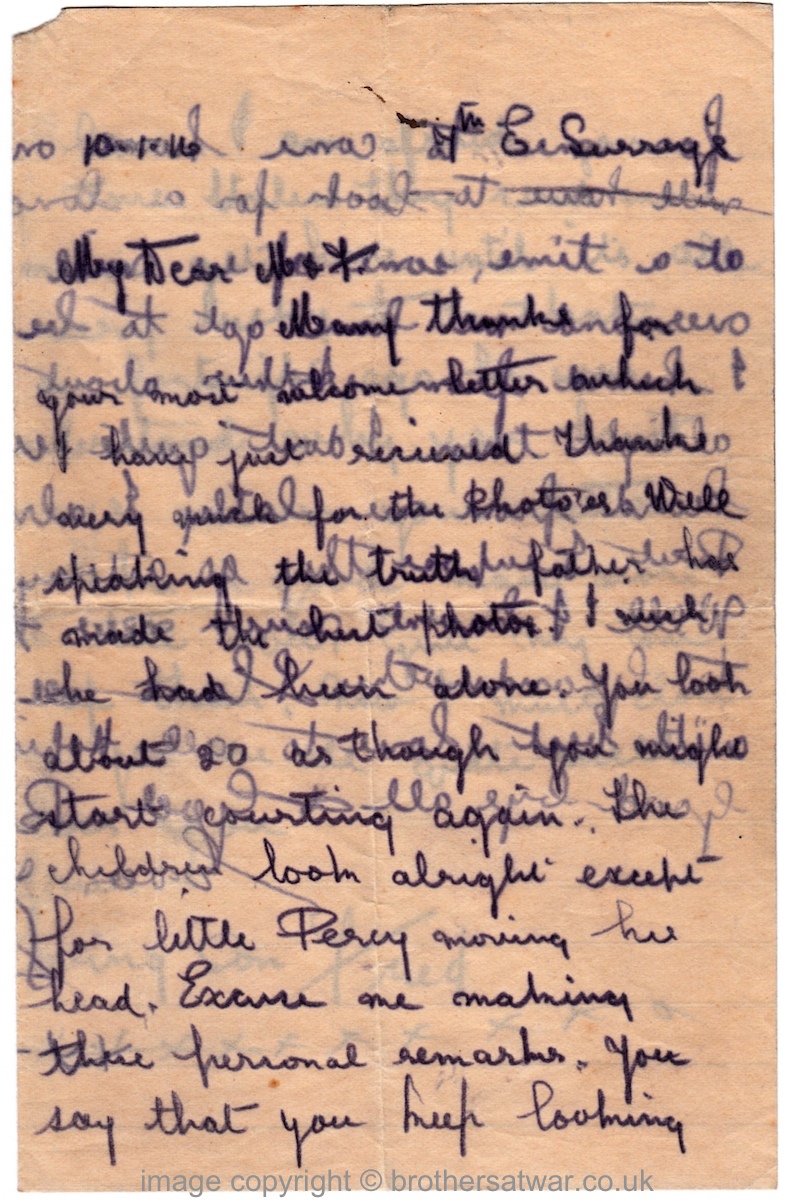 10-1-16 7th E. Surrey's
My Dear M & F.
Many thanks for
your most welcome letter which
I have just received Thanks
very much for the Photo'es Well
speaking the truth father has
made the best photo. I wish
he had been alone. You look
about 20 as though you might
start courting again. The
children look alright except
for little Percy moving his
head. Excuse me making
these personal remarks. You
say that you keep looking
image copyright © brothersatwar.co.uk